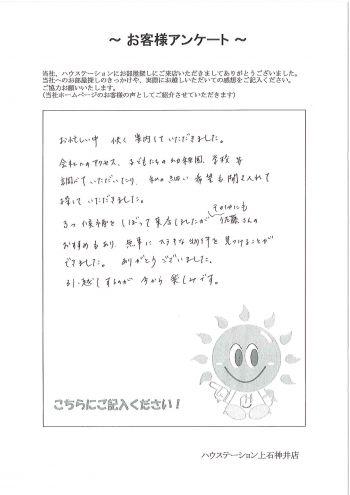 ～ お客様アンケート ～
当社、ハウステーションにお部屋探しにご来店いただきましてありがとうございました。
当社へのお部屋探しのきっかけや、実際にお越しいただいての感想をご記入ください。
ご協力お願いいたします。
(当社ホームページのお客様の声としてご紹介させていただきます)
お忙しい中 快く 案内していただきました。
会社へのアクセス、子どもたちの幼稚園、学校 等
調べていただいたり、私の細い 希望も聞き入れて
探して いただきました。
3つ 候補を しぼって 来店しましたが その他にも 佐藤さんの
おすすめもあり、無事に ステキな 物件を 見つけることが
できました。 ありがとうございました。
引っ越しするのが 今から 楽しみです。
こちらにご記入ください！
ハウステーション上石神井店